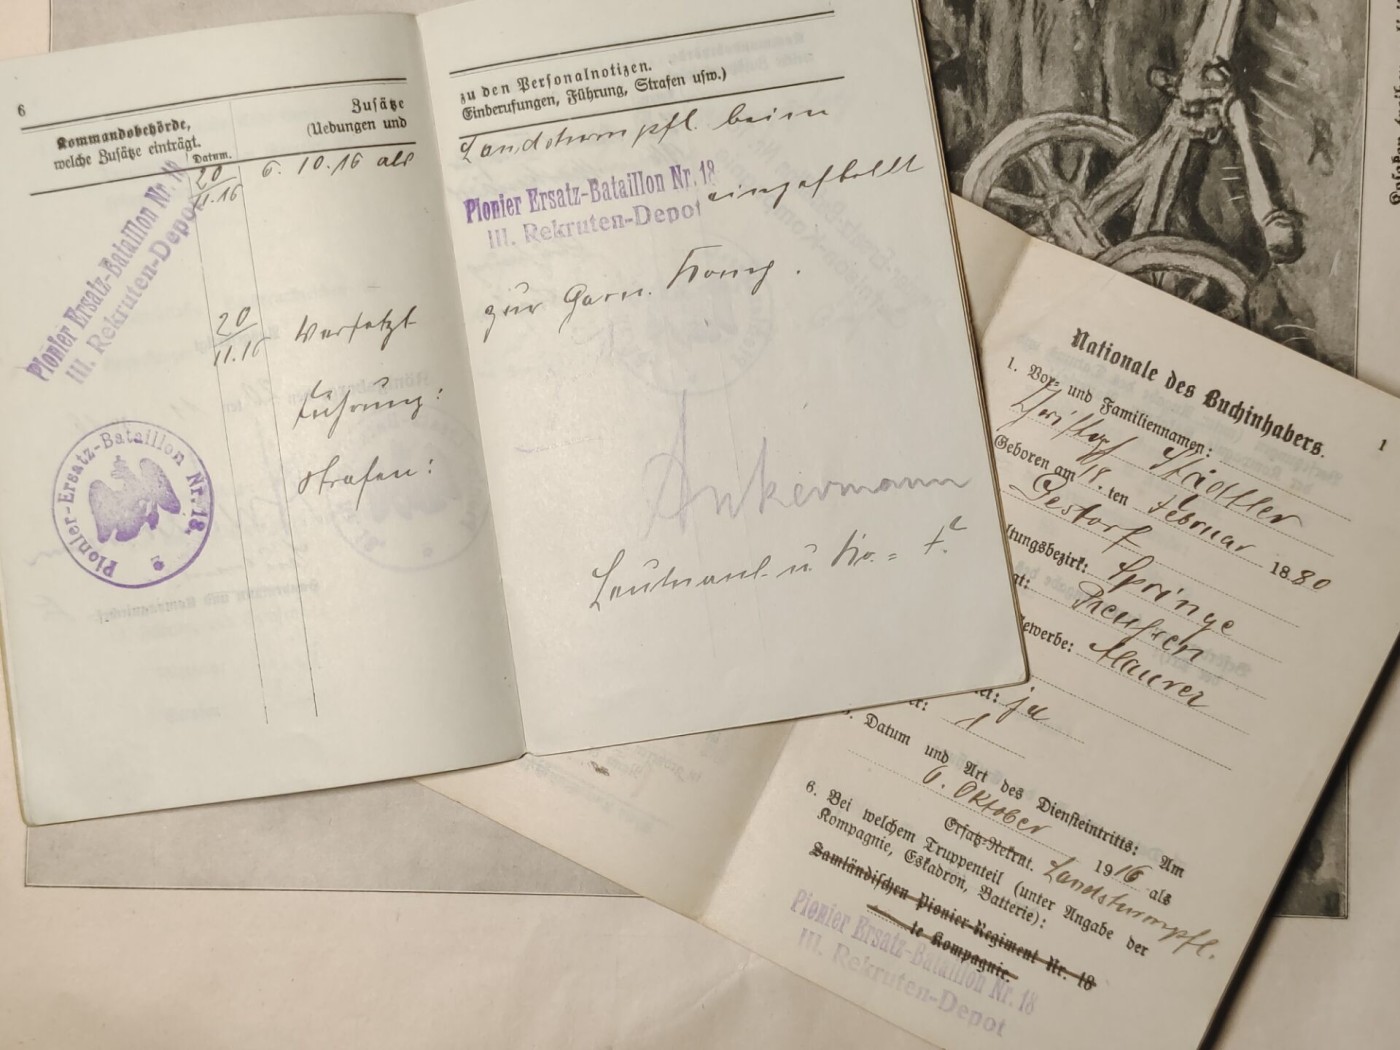 6
Kommandobehörde,
welche Zusätze einträgt.
Datum.
Zusätze
(Uebungen und
20
11.16
6. 10. 16 als
Pionier Ersatz-Bataillon Nr. 18
III. Rekruten-Depot
20
11.16
Versetzt
Führung:
Strafen:
Pionier-Ersatz-Bataillon Nr. 18.
zu den Personalnotizen.
Einberufungen, Führung, Strafen usw.)
Landsturmpfl. beim
Pionier Ersatz-Bataillon Nr. 18
III. Rekruten-Depot
eingestellt
zur Garn. Komp.
Ankermann
Leutnant u.
1
Nationale des Buchinhabers.
1. Vor- und Familiennamen:
Städtler
Geboren am 18. ten Februar 1880
Gestorf
ltungsbezirk: Springe
at: Preußen
ewerbe: Maurer
ja
1
Datum und Art des Diensteintritts: Am
6. Oktober 1916 als
Ersatz-Rekrut. Landsturmpfl.
6. Bei welchem Truppenteil (unter Angabe der
Kompagnie, Eskadron, Batterie):
Samländischen Pionier-Regiment Nr. 18
te Kompagnie.
Pionier Ersatz-Bataillon Nr. 18
III. Rekruten-Depot